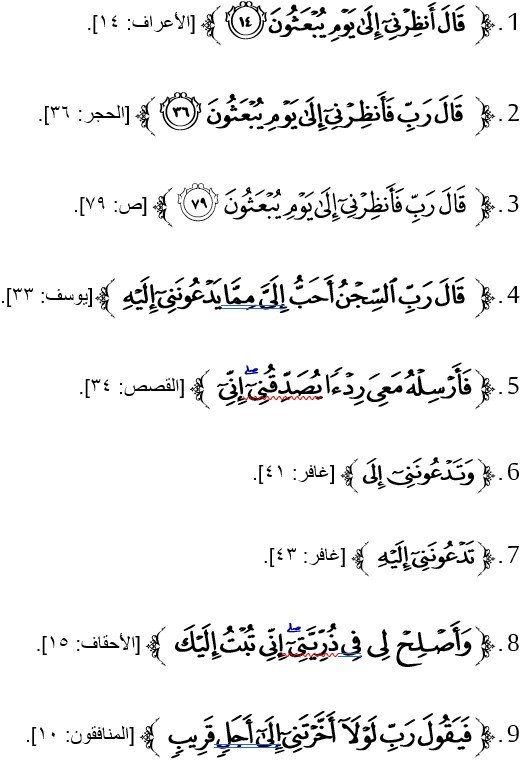 1. ﴿ قَالَ أَنظِرۡنِيٓ إِلَىٰ يَوۡمِ يُبۡعَثُونَ ١٤ ﴾ [الأعراف: ١٤].
2. ﴿ قَالَ رَبِّ فَأَنظِرۡنِيٓ إِلَىٰ يَوۡمِ يُبۡعَثُونَ ٣٦ ﴾ [الحجر: ٣٦].
3. ﴿ قَالَ رَبِّ فَأَنظِرۡنِيٓ إِلَىٰ يَوۡمِ يُبۡعَثُونَ ٧٩ ﴾ [ص: ٧٩].
4. ﴿ قَالَ رَبِّ ٱلسِّجۡنُ أَحَبُّ إِلَيَّ مِمَّا يَدۡعُونَنِيٓ إِلَيۡهِ ﴾ [يوسف: ٣٣].
5. ﴿ فَأَرۡسِلۡهُ مَعِيَ رِدۡءٗا يُصَدِّقُنِيٓۖ إِنِّيٓ ﴾ [القصص: ٣٤].
6. ﴿ وَتَدۡعُونَنِيٓ إِلَى ﴾ [غافر: ٤١].
7. ﴿ تَدۡعُونَنِيٓ إِلَيۡهِ ﴾ [غافر: ٤٣].
8. ﴿ وَأَصۡلِحۡ لِي فِي ذُرِّيَّتِيٓۖ إِنِّي تُبۡتُ إِلَيۡكَ ﴾ [الأحقاف: ١٥].
9. ﴿ فَيَقُولَ رَبِّ لَوۡلَآ أَخَّرۡتَنِيٓ إِلَىٰٓ أَجَلٖ قَرِيبٖ ﴾ [المنافقون: ١٠].